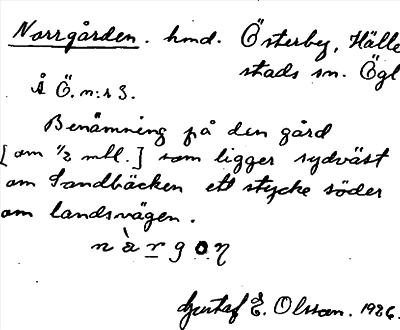 Norrgården. hmd. Österby, Hälle
stads sn. Ögl
Å Ö. n:r 3.
Benämning på den gård
[om ½ mtl.] som ligger sydväst
om Sandbäcken ett stycke söder
om landsvägen.
n à r g o ŋ
Gustaf E. Olsson. 1926.